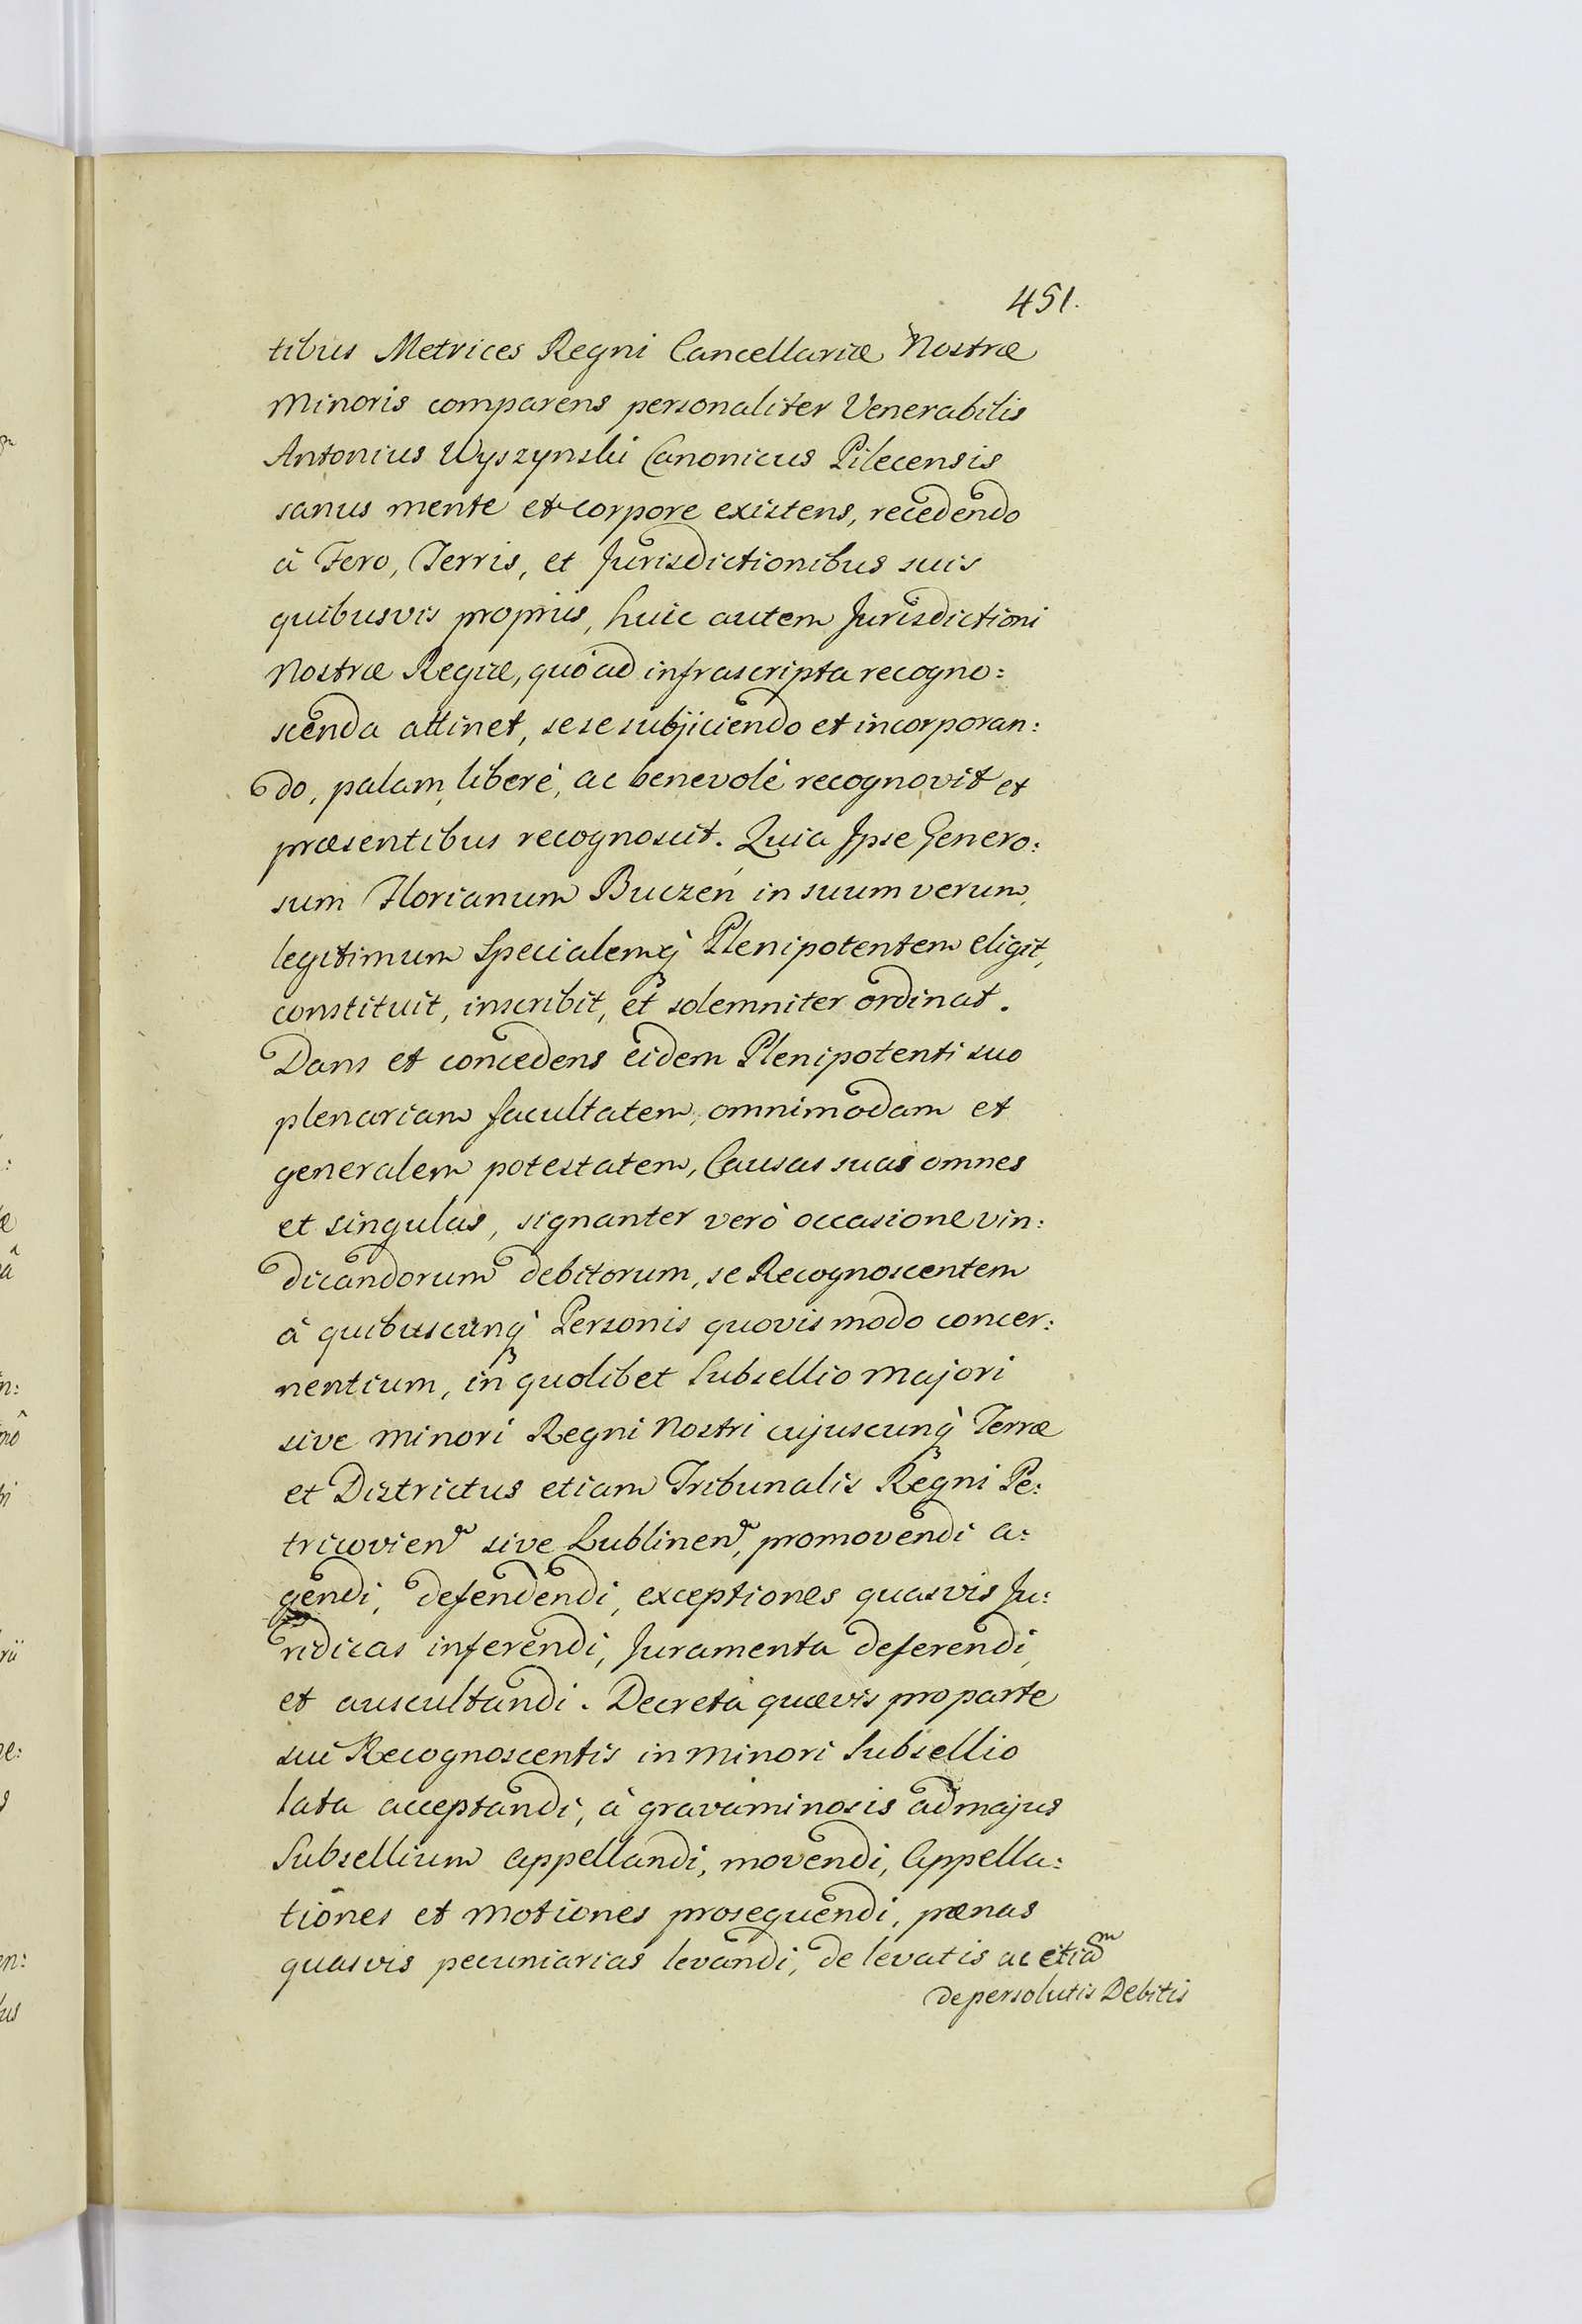 451.
tibus Metrices Regni Cancellariæ Nostræ
Minoris comparens personaliter Venerabilis
Antonius Wyszynski Canonicus Pilecensis
sanus mente et corpore existens, recedendo
à Fero, Terris, et Jurisdictionibus suis
quibusvis propriis, huic autem Jurisdictioni
Nostræ Regiæ, quò ad infrascripta recogno:
scenda attinet, sese subjiciendo et incorporan:
do, palam, liberè, ac benevolè recognovit et
præsentibus recognoscit. Quia Ipse Genero:
sum Florianum Buczeń in suum verum,
legitimum Specialemq̀ Plenipotentem eligit,
constituit, inscribit, et solemniter ordinat.
Dans et concedens eidem Plenipotenti suo
plenariam facultatem, omnimodam et
generalem potestatem, Causas suas omnes
et singulas, signanter verò occasione vin:
dicandorum debitorum, se Recognoscentem
à quibuscunq̀ Personis quovis modo concer:
nentium, in quolibet Subsellio Majori
sive Minori Regni Nostri cujuscunq̀ Terræ
et Districtus etiam Tribunalis Regni Pe:
tricovien̄ sive Lublinen̄, promovendi a:
gendi, defendendi, exceptiones quasvis Ju:
ridicas inferendi, Juramenta deferendi,
et auscultandi. Decreta quævis pro parte
sui Recognoscentis in Minori Subsellio
lata acceptandi, à gravaminosis ad majus
Subsellium appellandi, movendi, Appella:
tiones et motiones prosequendi, pænas
quasvis pecuniarias levandi, de levatis ac etiam
de persolutis Debitis